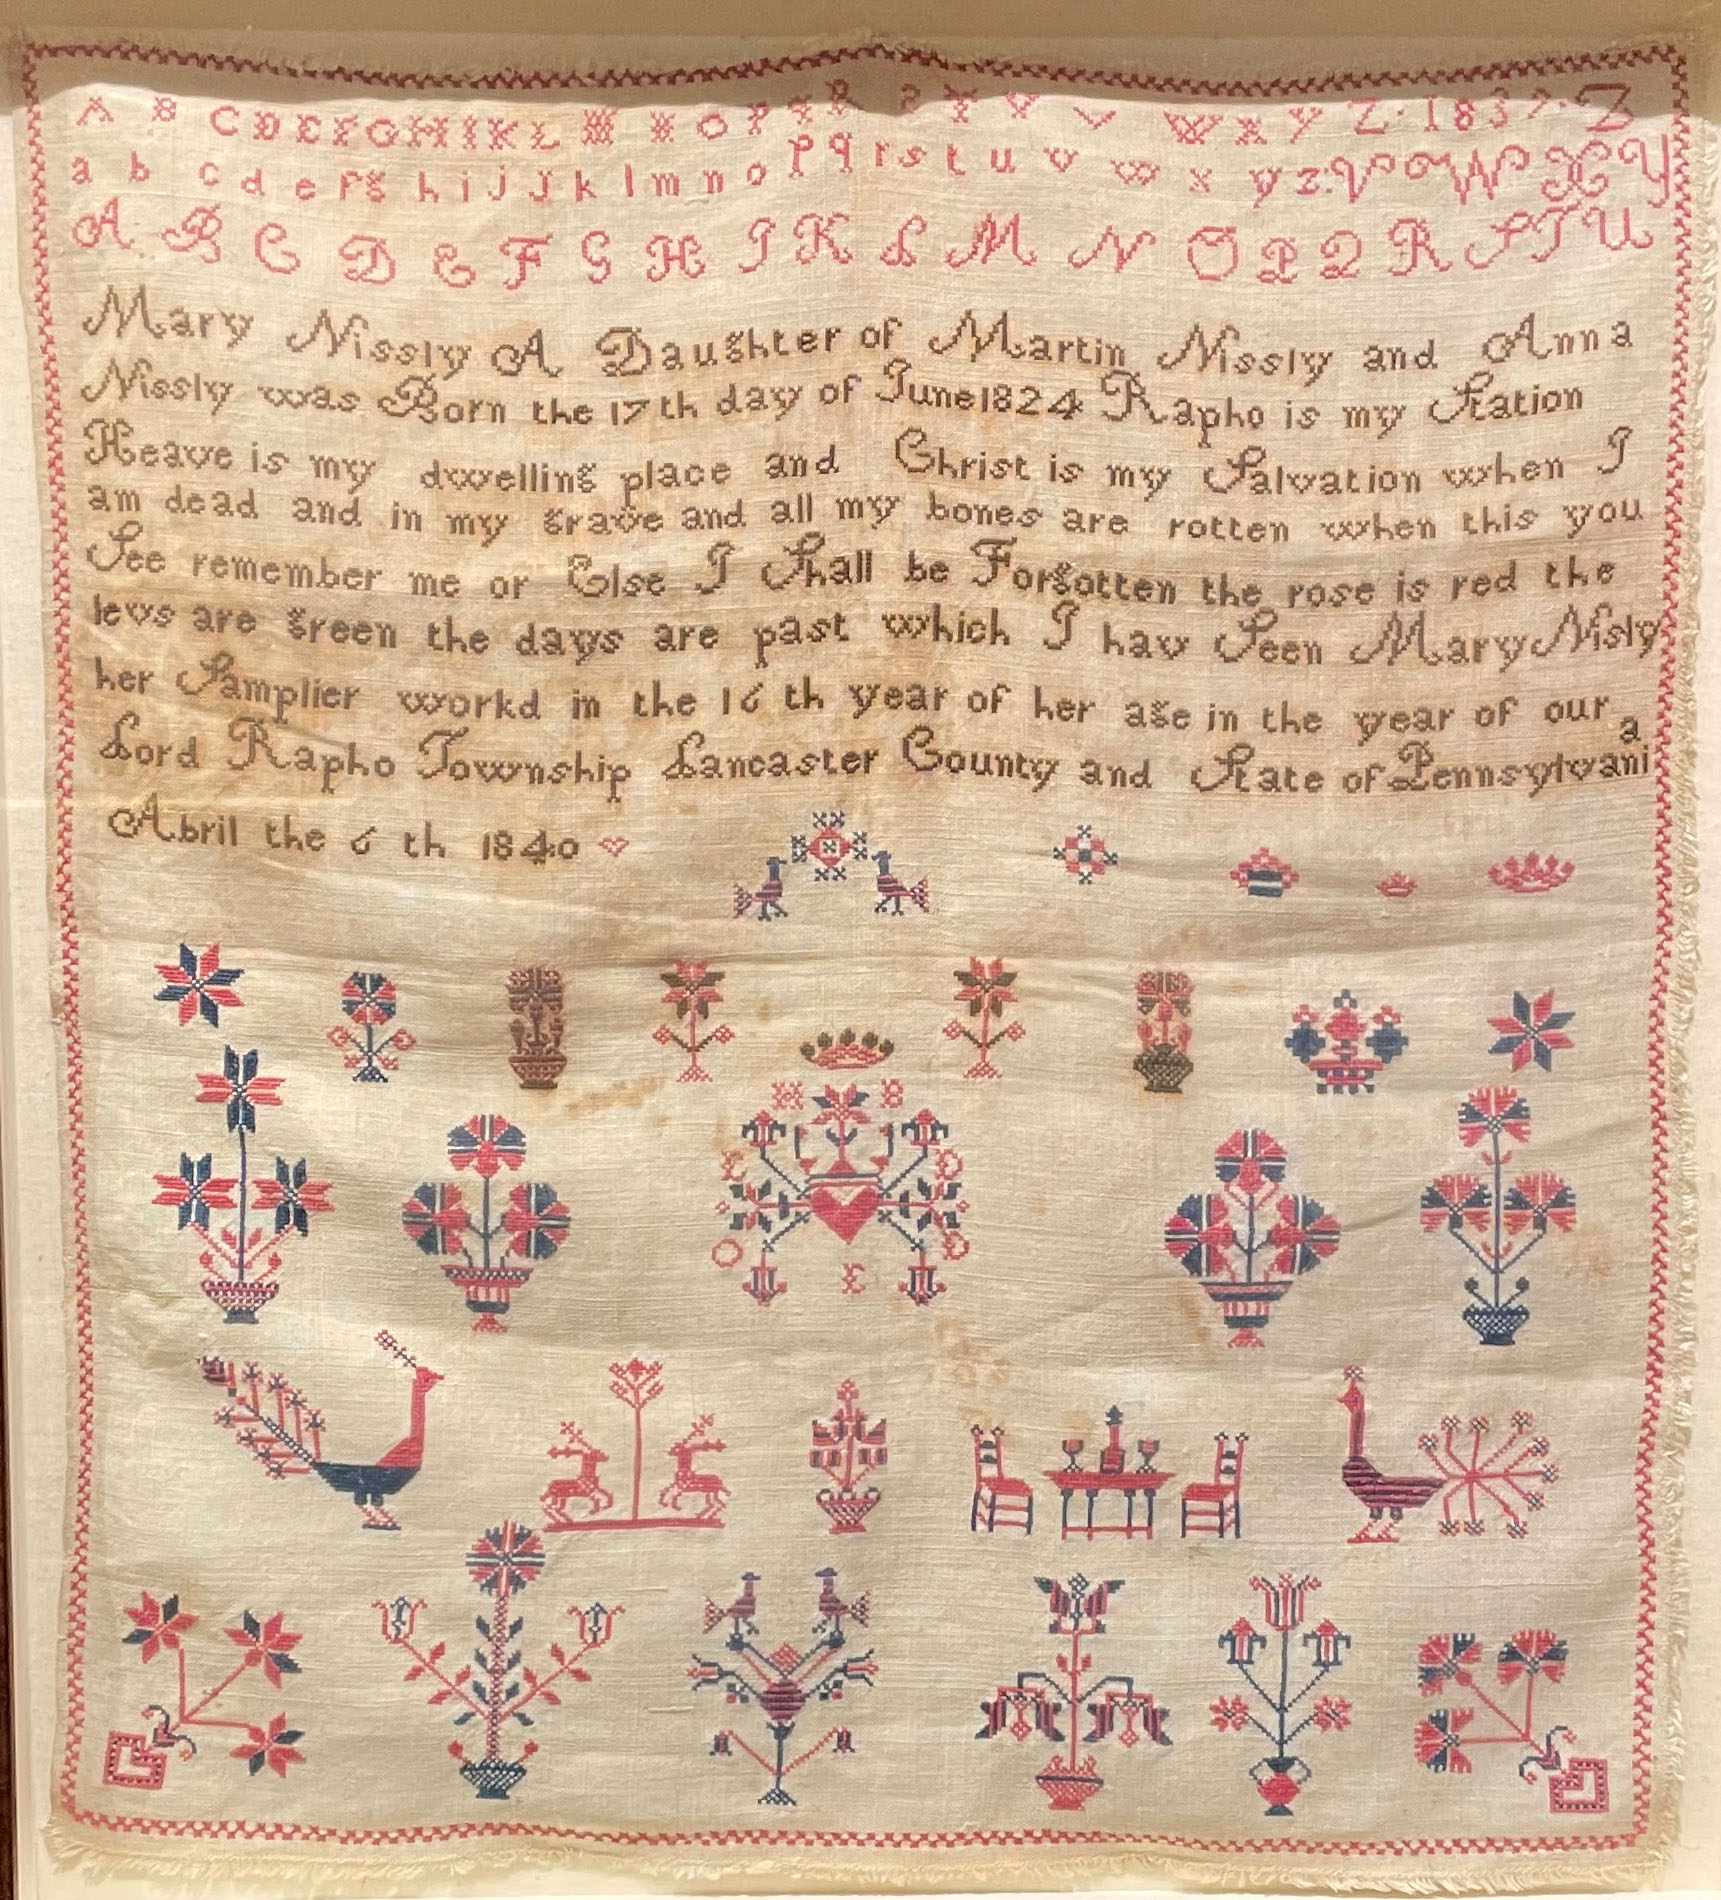 A B C D E F G H I K L M N O P q R S T U V W X Y Z · 1837 · Z
a b c d e f g h i j J k l m n o p q r s t u v w x y z : V O W X Y
A B C D E F G H I K L M N O P Q R S T U
Mary Nissly A Daughter of Martin Nissly and Anna
Nissly was Born the 17 th day of June 1824 Rapho is my Station
Heave is my dwelling place and Christ is my Salvation when I
am dead and in my grave and all my bones are rotten when this you
See remember me or Else I Shall be Forgotten the rose is red the
levs are green the days are past which I hav Seen Mary Nisly
her Samplier workd in the 16 th year of her age in the year of our
Lord Rapho Township Lancaster County and State of Pennsylvania
Abril the 6 th 1840